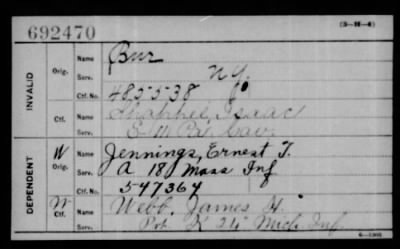 692470
(3-H-4)
INVALID
Orig. Name Bur
Serv. N.Y.
Ctf. No. 485538
Ctf. Name Isaac
Serv. Pa. Cav.
DEPENDENT
W Orig. Name Jennings, Ernest T.
Serv. A 18 Mass Inf
Ctf. No. 547364
W Ctf. Name Webb, James H.
Serv. Pvt. K 24 Mich Inf.